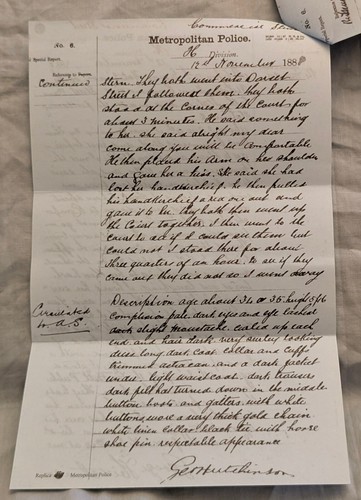 Commercial Street
No. 6.
Metropolitan Police.
Special Report.
H Division.
Referring to Papers
12th November 1888
Continued
Stern. They both went into Dorset
Street I followed them. They both
stood at the Corner of the Court for
about 3 minutes. He said something
to her. she said alright my dear
come along you will be comfortable
He then placed his arm on her shoulder
and gave her a kiss. She said she had
lost her handkerchief. he then pulled
his handkerchief a red one out and
gave it to her. they both then went up
the Court together. I then went to the
court to see if I could see them but
could not I stood there for about
three quarters of an hour to see if they
came out they did not so I went away
Circulated
to A.S.
Description age about 34 or 35 height 5ft 6
complexion pale. dark eyes and eye lashes
dark slight moustache curled up each
end and hair dark. very surley looking
dress long dark coat collar and cuffs
trimmed astracan and a dark jacket
under. light waistcoat dark trousers
dark felt hat turned down in the middle
button boots and gaiters with white
buttons, wore a very thick gold chain
white linen collar black tie with horse
shoe pin. respectable appearance
Geo Hutchinson
Replica Metropolitan Police